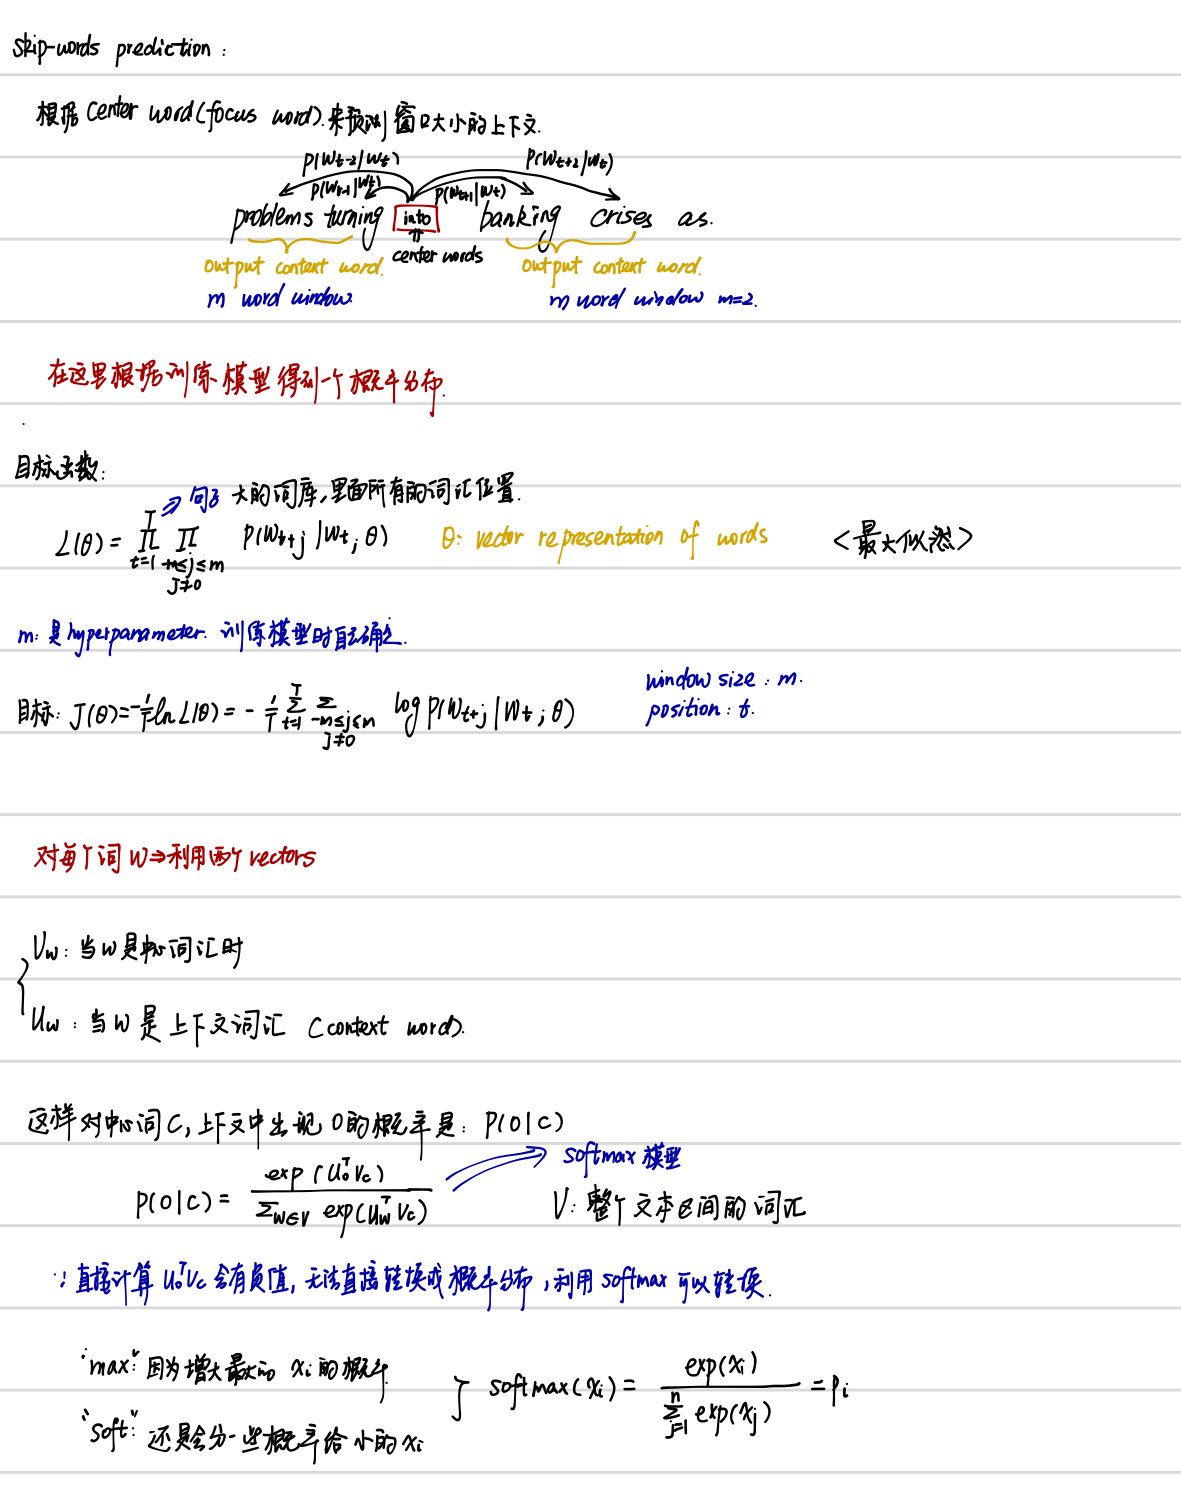 skip-words prediction :
根据 center word (focus word). 来预测 窗口大小的上下文.
P(Wt-2|Wt) P(Wt+2|Wt)
P(Wt-1|Wt) P(Wt+1|Wt)
problems turning into banking crises as.
output context word. center words output context word.
m word window. m word window m=2.
在这里根据训练模型得到一个概率分布.
目标函数:
大的词库,里面所有的词汇位置.
L(θ) = ∏_{t=1}^{T} ∏_{-m≤j≤m, j≠0} P(Wt+j | Wt; θ) θ: vector representation of words <最大似然>
m: 是 hyperparameter. 训练模型时自己确定.
window size : m.
目标: J(θ) = -1/T ln L(θ) = - 1/T ∑_{t=1}^{T} ∑_{-m≤j≤m, j≠0} log P(Wt+j | Wt; θ) position : t.
对每个词 W⇒利用两个 vectors
Vw : 当 w 是中心词汇时
Uw : 当 w 是上下文词汇 (context word).
这样对中心词 C, 上下文中出现 O 的概率是: P(O|C)
softmax 模型
P(O|C) = exp(Uo^T Vc) / ∑_{W∈V} exp(Uw^T Vc) V: 整个文本空间的词汇
∵ 直接计算 Uo^T Vc 会有负值, 无法直接转换成概率分布, 利用 softmax 可以转换.
"max": 因为增大最大的 xi 的概率
} softmax(xi) = exp(xi) / ∑_{j=1}^{n} exp(xj) = Pi
"soft": 还是会分一些概率给小的 xi